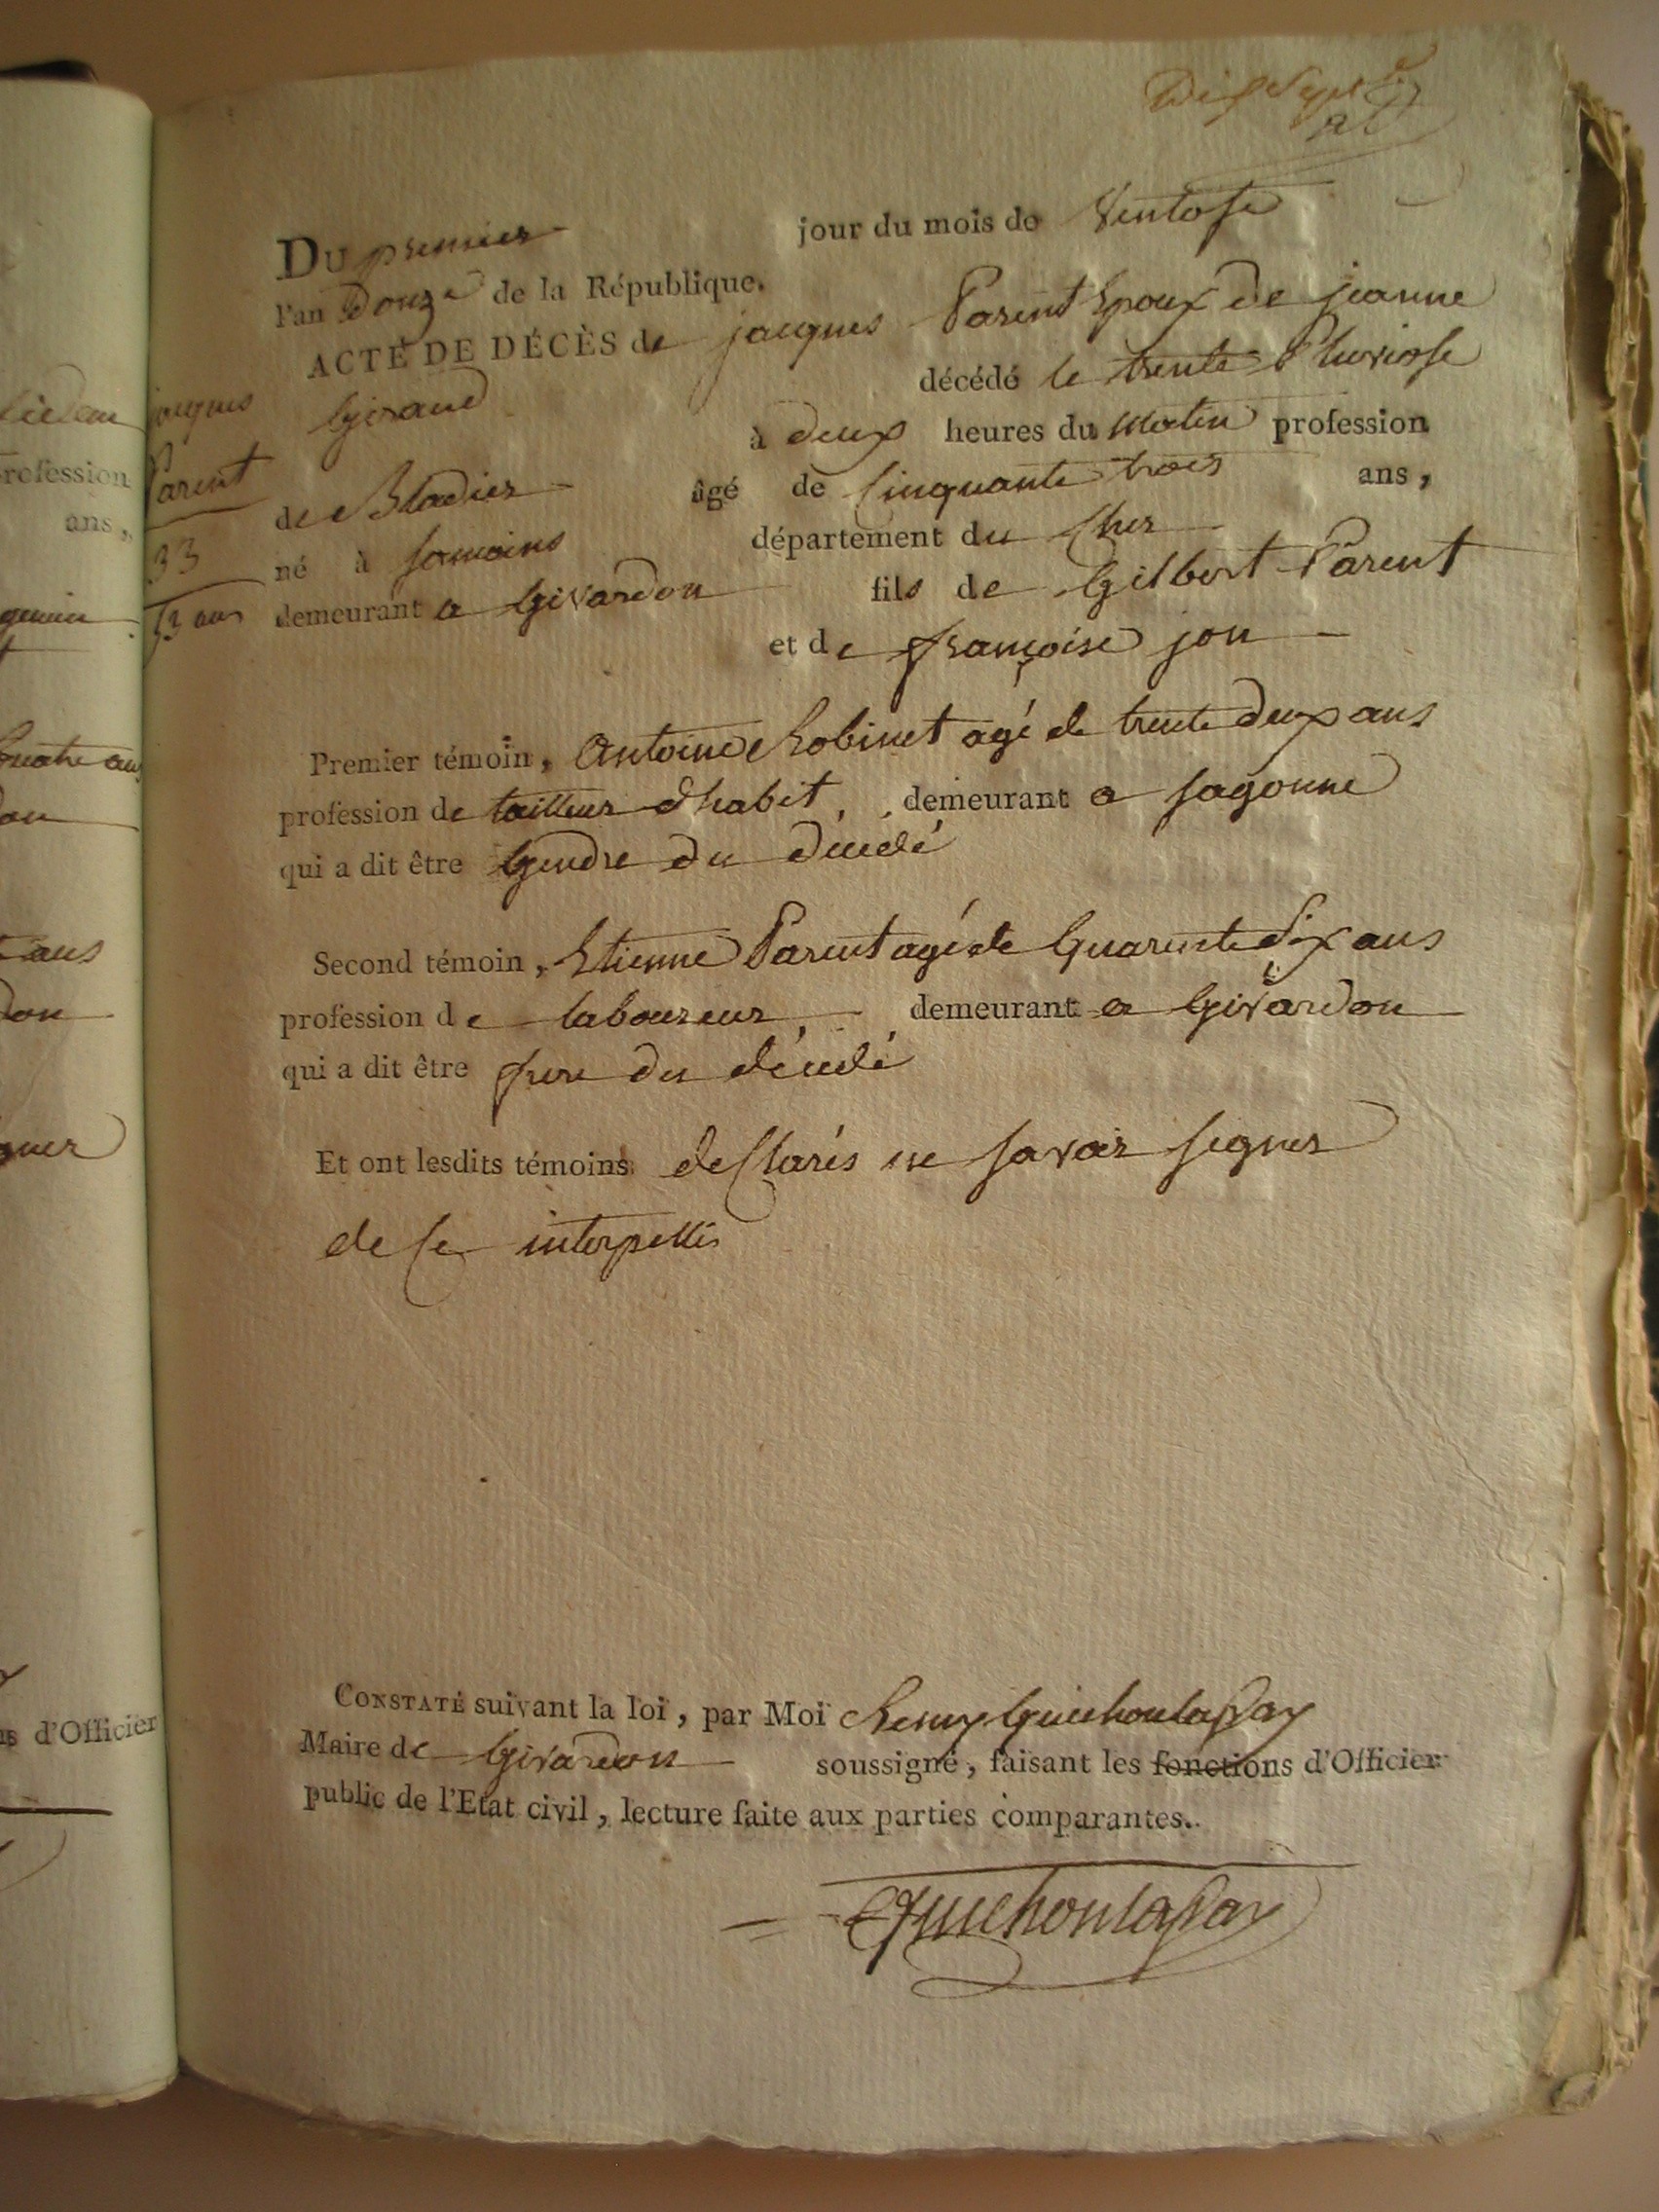 Dix Sept
Du premier jour du mois de Ventose
l'an Douze de la République.
ACTE DE DÉCÈS de jacques Parent Epoux de jeanne
Giraud décédé le trente Pluviose
à deux heures du Matin profession
de Bladier âgé de Cinquante trois ans,
né à Somoins département du Cher
demeurant a Givardon fils de Gilbert Parent
et de françoise jon
jacques
Parent
33
53 ans
Premier témoin, Antoine Robinet agé de trente deux ans
profession de tailleur d'habit, demeurant a Sagonne
qui a dit être Gendre du décédé
Second témoin, Etienne Parent agé de Quarente Six ans
profession de laboureur, demeurant a Givardon
qui a dit être frere du décédé
Et ont lesdits témoins declarés ne savoir signer
de ce interpellés
CONSTATÉ suivant la loi, par Moi Remy Guichonlassay
Maire de Givardon soussigné, faisant les fonctions d'Officier
public de l'Etat civil, lecture faite aux parties comparantes.
Guichonlassay
profession
ans,
quatre ans
ans
d'Officier